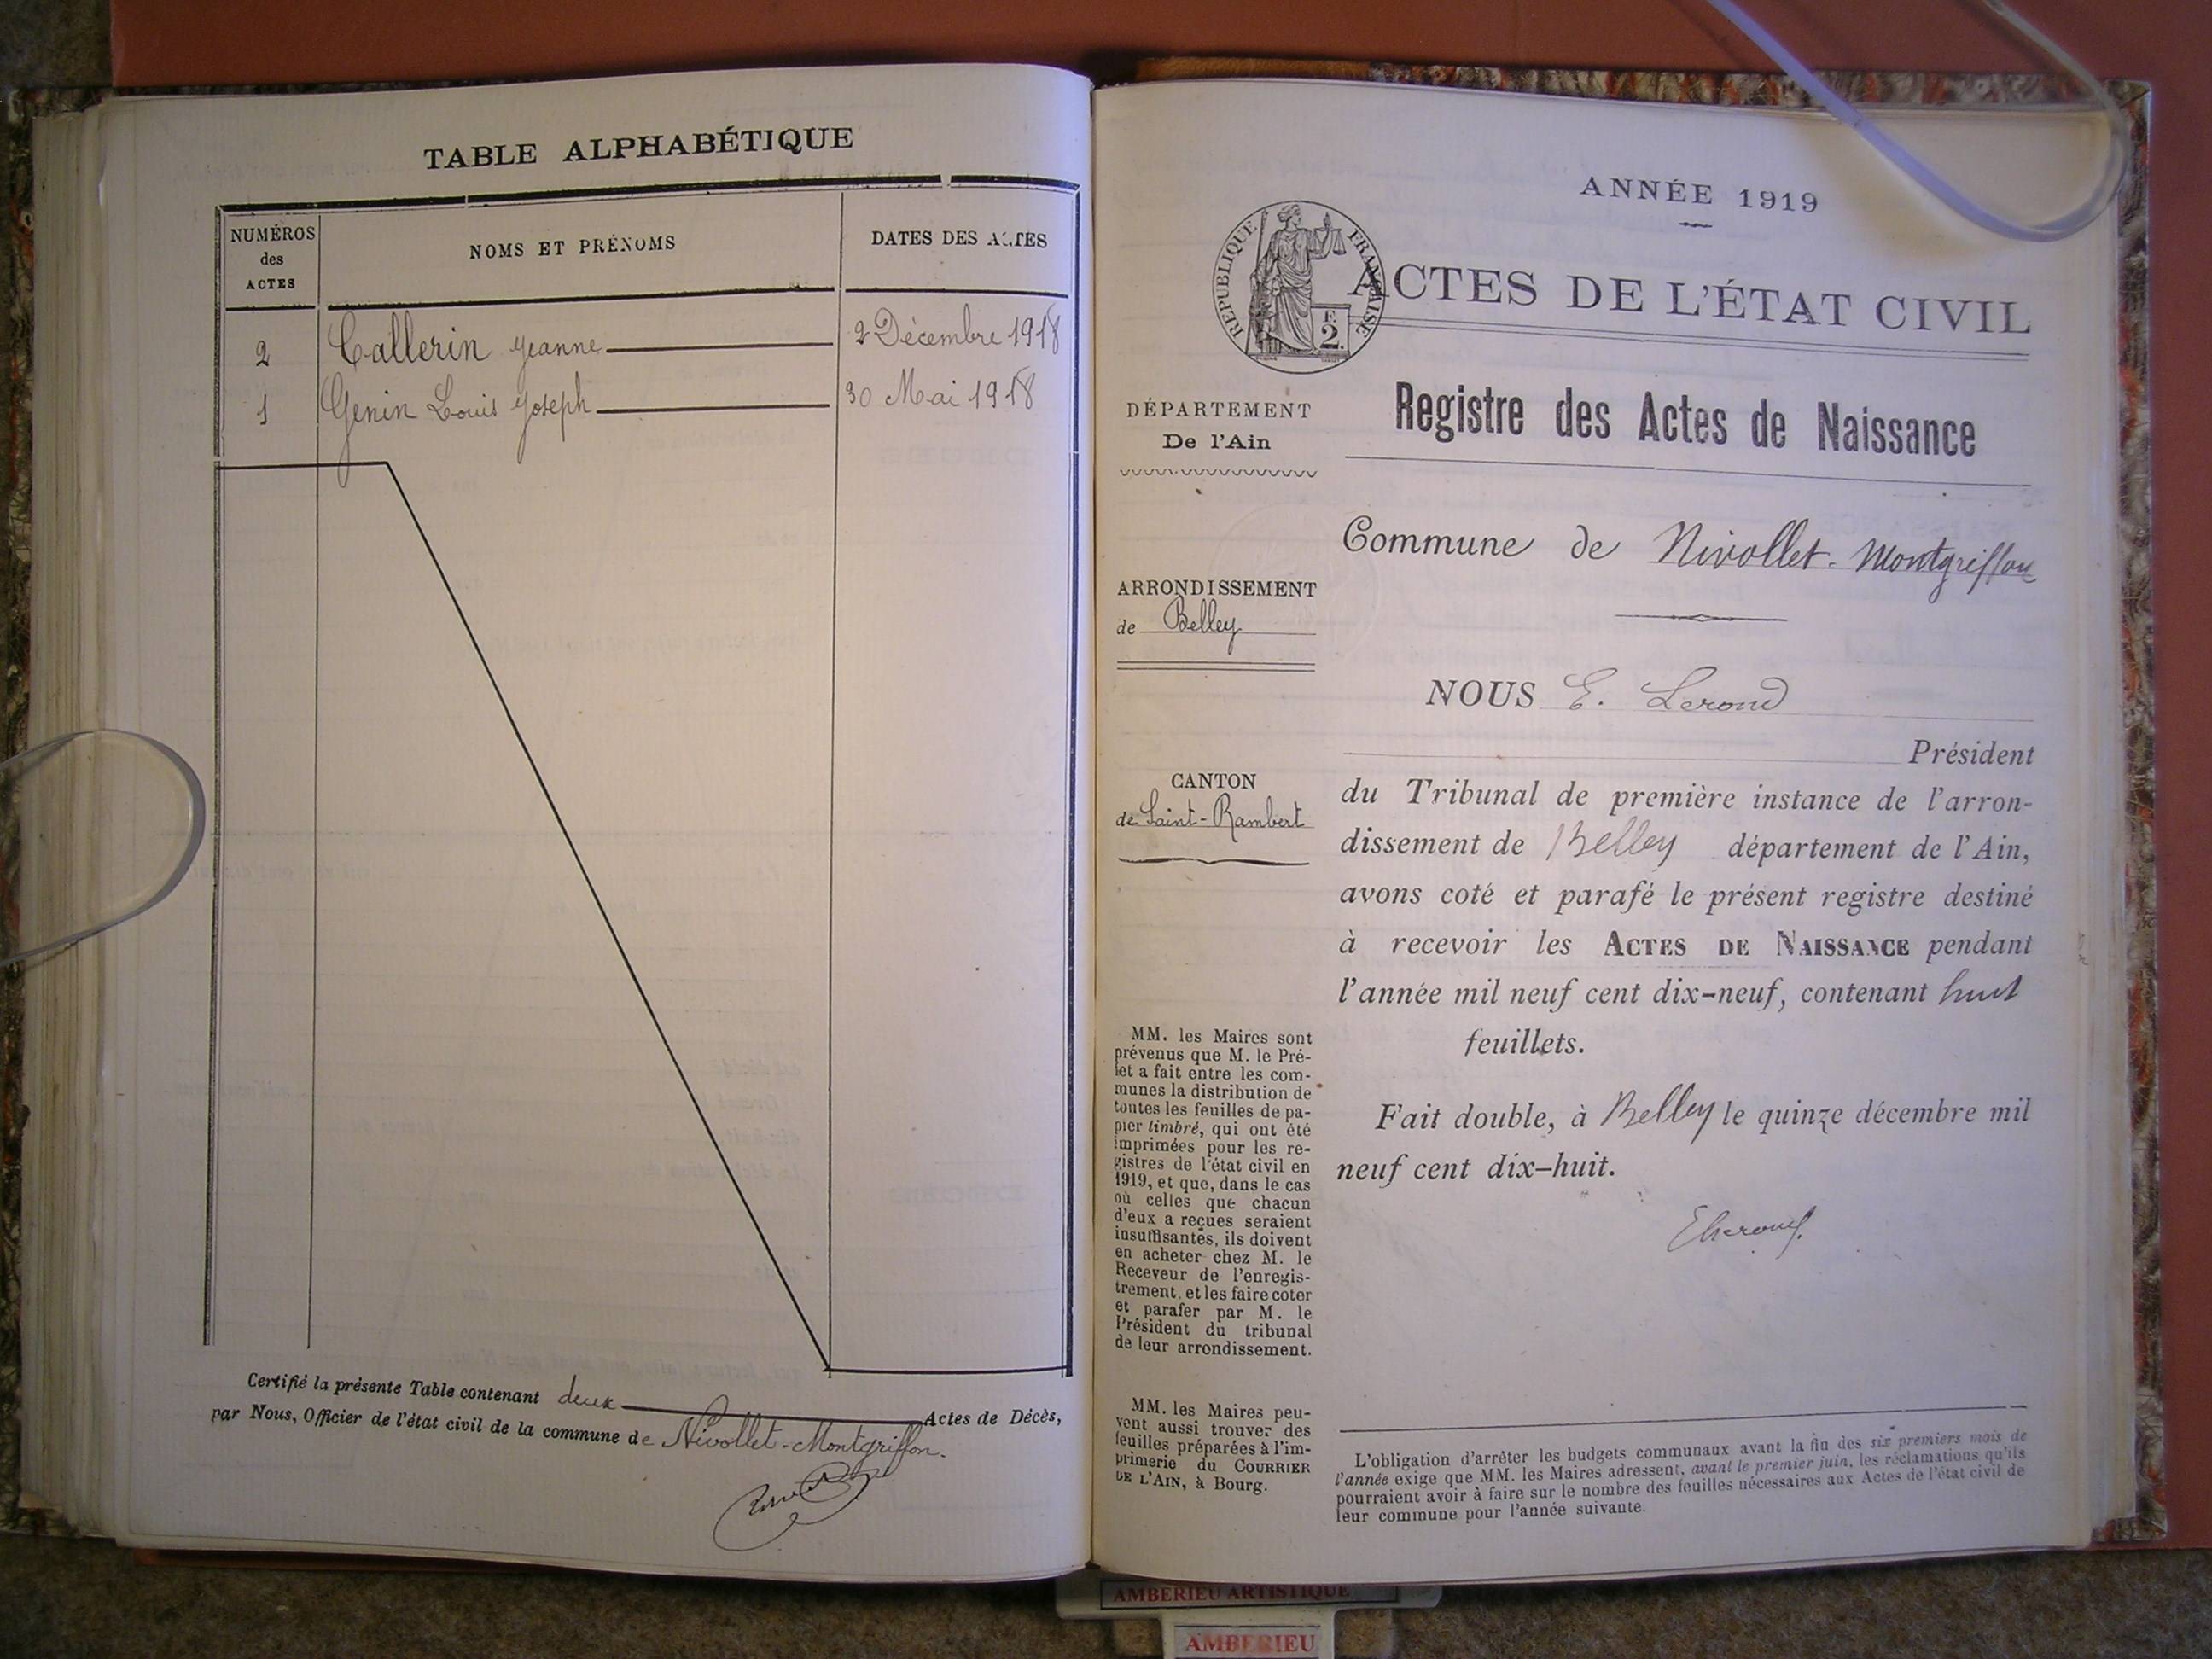 TABLE ALPHABÉTIQUE
NUMÉROS
des
ACTES
NOMS ET PRÉNOMS
DATES DES ACTES
2 Callerin Jeanne 2 Décembre 1918
1 Genin Louis Joseph 30 Mai 1918
Certifié la présente Table contenant deux Actes de Décès,
par Nous, Officier de l'état civil de la commune de Nivollet-Montgriffon.
ANNÉE 1919
RÉPUBLIQUE FRANÇAISE
F.
2.
ACTES DE L'ÉTAT CIVIL
DÉPARTEMENT
De l'Ain
ARRONDISSEMENT
de Belley
CANTON
de Saint-Rambert
MM. les Maires sont
prévenus que M. le Pré-
fet a fait entre les com-
munes la distribution de
toutes les feuilles de pa-
pier timbré, qui ont été
imprimées pour les re-
gistres de l'état civil en
1919, et que, dans le cas
où celles que chacun
d'eux a reçues seraient
insuffisantes, ils doivent
en acheter chez M. le
Receveur de l'enregis-
trement, et les faire coter
et parafer par M. le
Président du tribunal
de leur arrondissement.
MM. les Maires peu-
vent aussi trouver des
feuilles préparées à l'im-
primerie du COURRIER
DE L'AIN, à Bourg.
Registre des Actes de Naissance
Commune de Nivollet-Montgriffon
NOUS E. Lerond
Président
du Tribunal de première instance de l'arron-
dissement de Belley département de l'Ain,
avons coté et parafé le présent registre destiné
à recevoir les ACTES DE NAISSANCE pendant
l'année mil neuf cent dix-neuf, contenant huit
feuillets.
Fait double, à Belley le quinze décembre mil
neuf cent dix-huit.
L'obligation d'arrêter les budgets communaux avant la fin des six premiers mois de
l'année exige que MM. les Maires adressent, avant le premier juin, les réclamations qu'ils
pourraient avoir à faire sur le nombre des feuilles nécessaires aux Actes de l'état civil de
leur commune pour l'année suivante.
AMBERIEU ARTISTIQUE
AMBERIEU